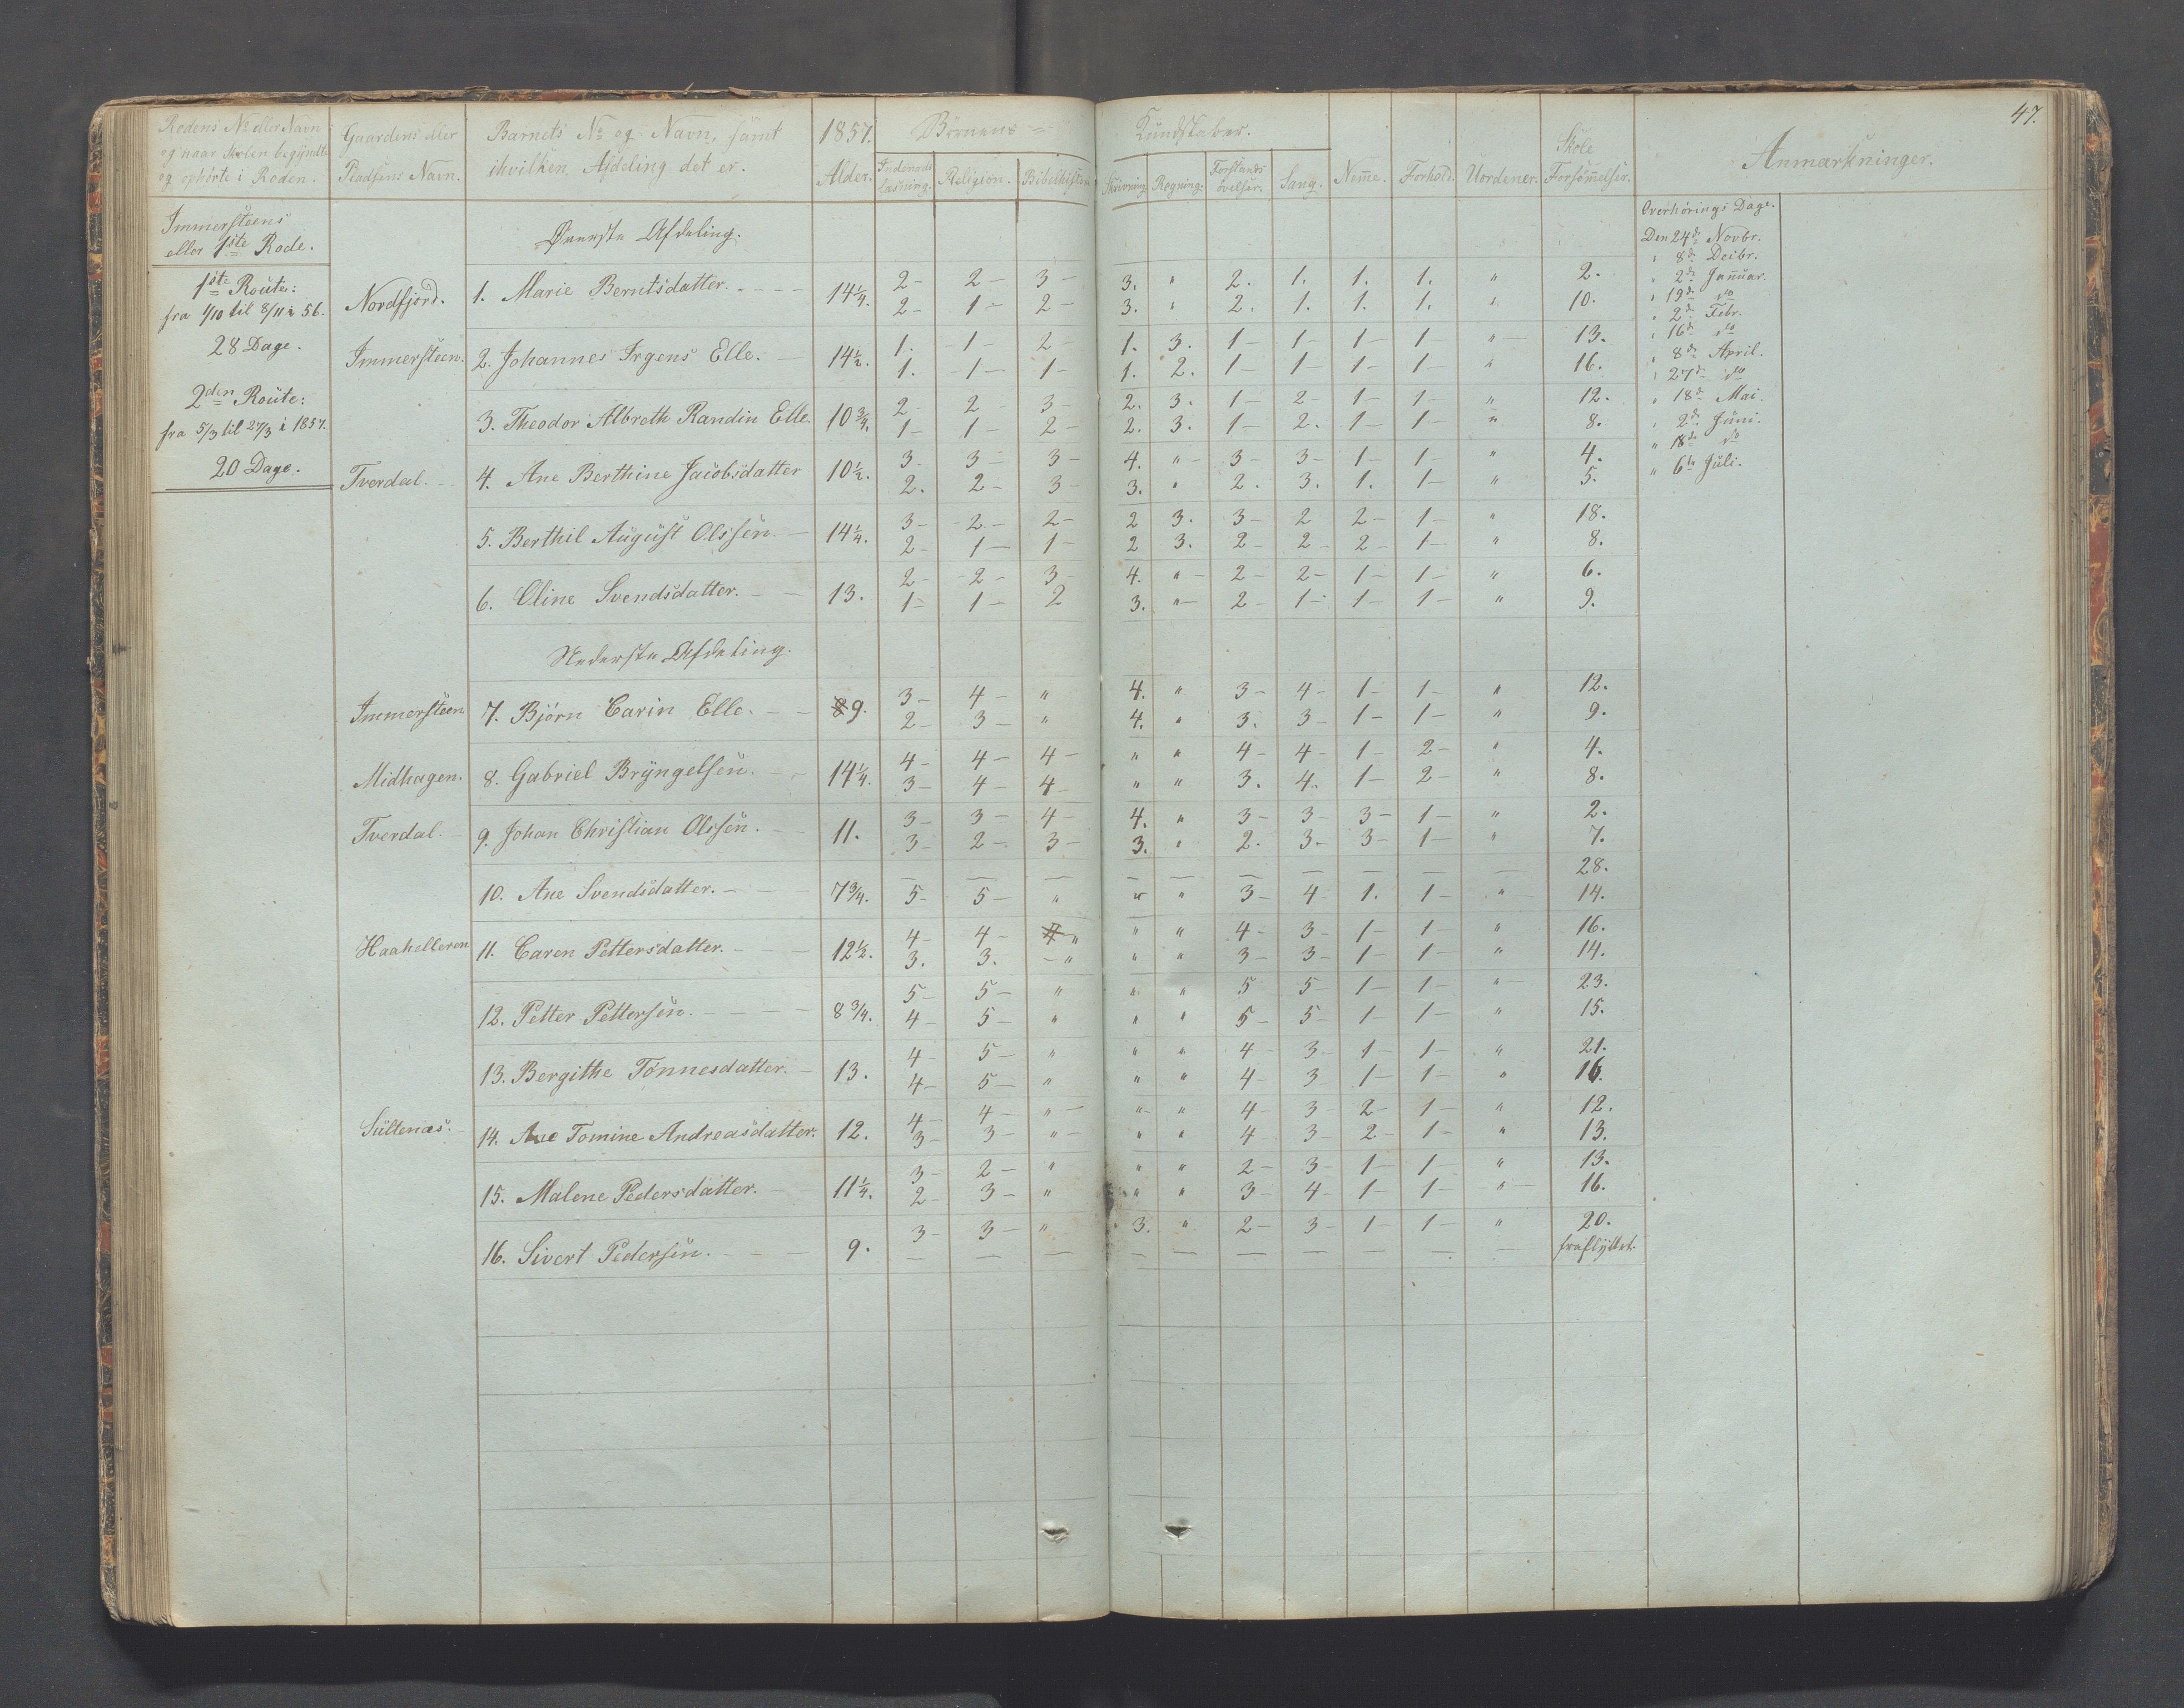 47.
Rodens No eller Navn og naar Skolen begÿndte og ophørte i Roden. | Gaardens eller Pladsens Navn. | Barnets No og Navn, samt ihvilken Afdeling det er. | 1857. Alder. | Børnenes Kundskaber. | Skole Forsømmelser. | Anmærkninger.
Indenads læsning. | Religion. | Bibelhistorie | Skrivning | Regning. | Forstands øvelser. | Sang. | Nem̄e. | Forhold. | Uordener.
Immersteens
eller 1ste Rode.
1ste Route:
fra 1/10 til 8/11 i 56.
28 Dage.
2den Route:
fra 5/3 til 27/3 i 1857.
20 Dage.
Øverste Afdeling.
Nordfjord. 1. Marie Berntsdatter. 14 1/4. 2 - 2 - 3 - 3. " 2. 1. 1. 1. " 2.
2 - 1 - 2 - 3. " 2. 1. 1. 1. " 10.
Immersteen. 2. Johannes Irgens Elle. 14 1/2. 1. 1 - 2 - 1. 3. 1 - 1 - 1 - 1 " 13.
1. 1 - 1 - 1. 2. 1 - 1 - 1 - 1 " 16.
3. Theodor Albreth Randin Elle. 10 3/4. 2 - 2 - 3 - 2. 3. 1 - 2 - 1 - 1 - " 12.
1 - 1 - 2 - 2. 3. 1 - 2. 1 - 1 - " 8.
Tverdal. 4. Ane Berthine Jacobsdatter 10 1/2. 3 - 3 - 3 - 4. " 3 - 3 - 1 - 1 - " 4.
2. 2 - 3 - 3. " 2. 3. 1. 1 - " 5.
5. Berthil August Olssen. 14 1/4. 3 - 2 - 2 - 2 3. 3 - 2 2 - 1 - " 18.
2 - 1 - 1 - 2 3. 2 - 2 - 2 - 1 - " 8.
6. Oline Svendsdatter. 13. 2 - 2 - 3 - 4. " 2 - 2 - 1 - 1 - " 6.
1 - 1 - 2 3. " 2 - 1 - 1 - 1 - " 9.
Nederste Afdeling.
Immersteen 7. Bjørn Carin Elle. 9. 3 - 4 - " 4. " 3 - 4 - 1 - 1 - " 12.
2 - 3 - " 4. " 3. 3 - 1 - 1 - " 9.
Midhagen. 8. Gabriel Brÿngelsen. 14 1/4. 4 - 4 - 4 - " " 4 - 4 - 1 - 2 - " 4.
3 - 4 - 4 - " " 3. 4. 1 - 2 - " 8.
Tverdal. 9. Johan Christian Olssen. 11. 3 - 3 - 4 - 4. " 3 - 3 - 3 - 1 - " 2.
3 - 2 - 3 - 3. " 2. 3 - 3 - 1 - " 7.
— — — — — — — — — — 28.
10. Ane Svendsdatter. 7 3/4. 5 - 5 - " " " 3 - 4 - 1. 1 - " 14.
Haahelleren 11. Caren Pettersdatter. 12 1/2. 4 - 4 - " " " 4 - 3 - 1 - 1 - " 16.
3. 3. " " " 3 - 3 - 1 - 1 - " 14.
12. Petter Pettersen. 8 3/4. 5 - 5 - " " " 5 5 - 1 - 1 - " 23.
4 - 5 - " " " 5 - 5 - 1 - 1 - " 15.
13. Bergithe Tønnesdatter. 13. 4 - 5 - " " " 4 - 3 - 1 - 1 - " 21.
4 - 5 - " " " 4 - 3 1 - 1 - " 16.
Sültenæs. 14. Ane Tomine Andreasdatter. 12. 4 - 4 - " " " 4 - 3 - 2 - 1 - " 12.
3 - 3 - " " " 4 - 3 - 2 - 1 - " 13.
15. Malene Pedersdatter. 11 1/4. 3 - 2 - " " " 2 - 3 - 1 - 1 - " 13.
2 - 3 - " " " 3 - 4 - 1 - 1 - " 16.
16. Sivert Pedersen. 9. 3 - 3 - " 3. " 2 - 3 - 1 - 1 - " 20.
— — — — — — — — fraflÿttet.
Overhørings Dage.
Den 24de Novbr.
" 8de Decbr.
" 2de Januar
" 19de do
" 2de Febr.
" 16de do
" 8de April.
" 27de do
" 18de Mai.
" 2de Juni.
" 18de do
" 6te Juli.